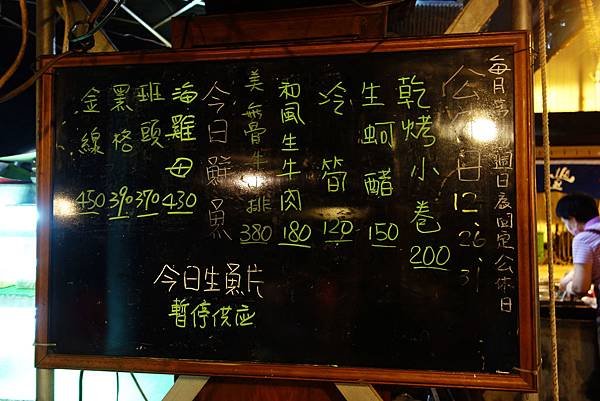 每月第 週日及四是公休日
公休日12.26.31
乾烤小卷 200
生蚵醋 150
冷筍 120
和風生牛肉 180
美無骨牛排 380
今日鮮魚
海雞母 430
班頭 370
黑格 390
金線 450
今日生魚片
暫停供应